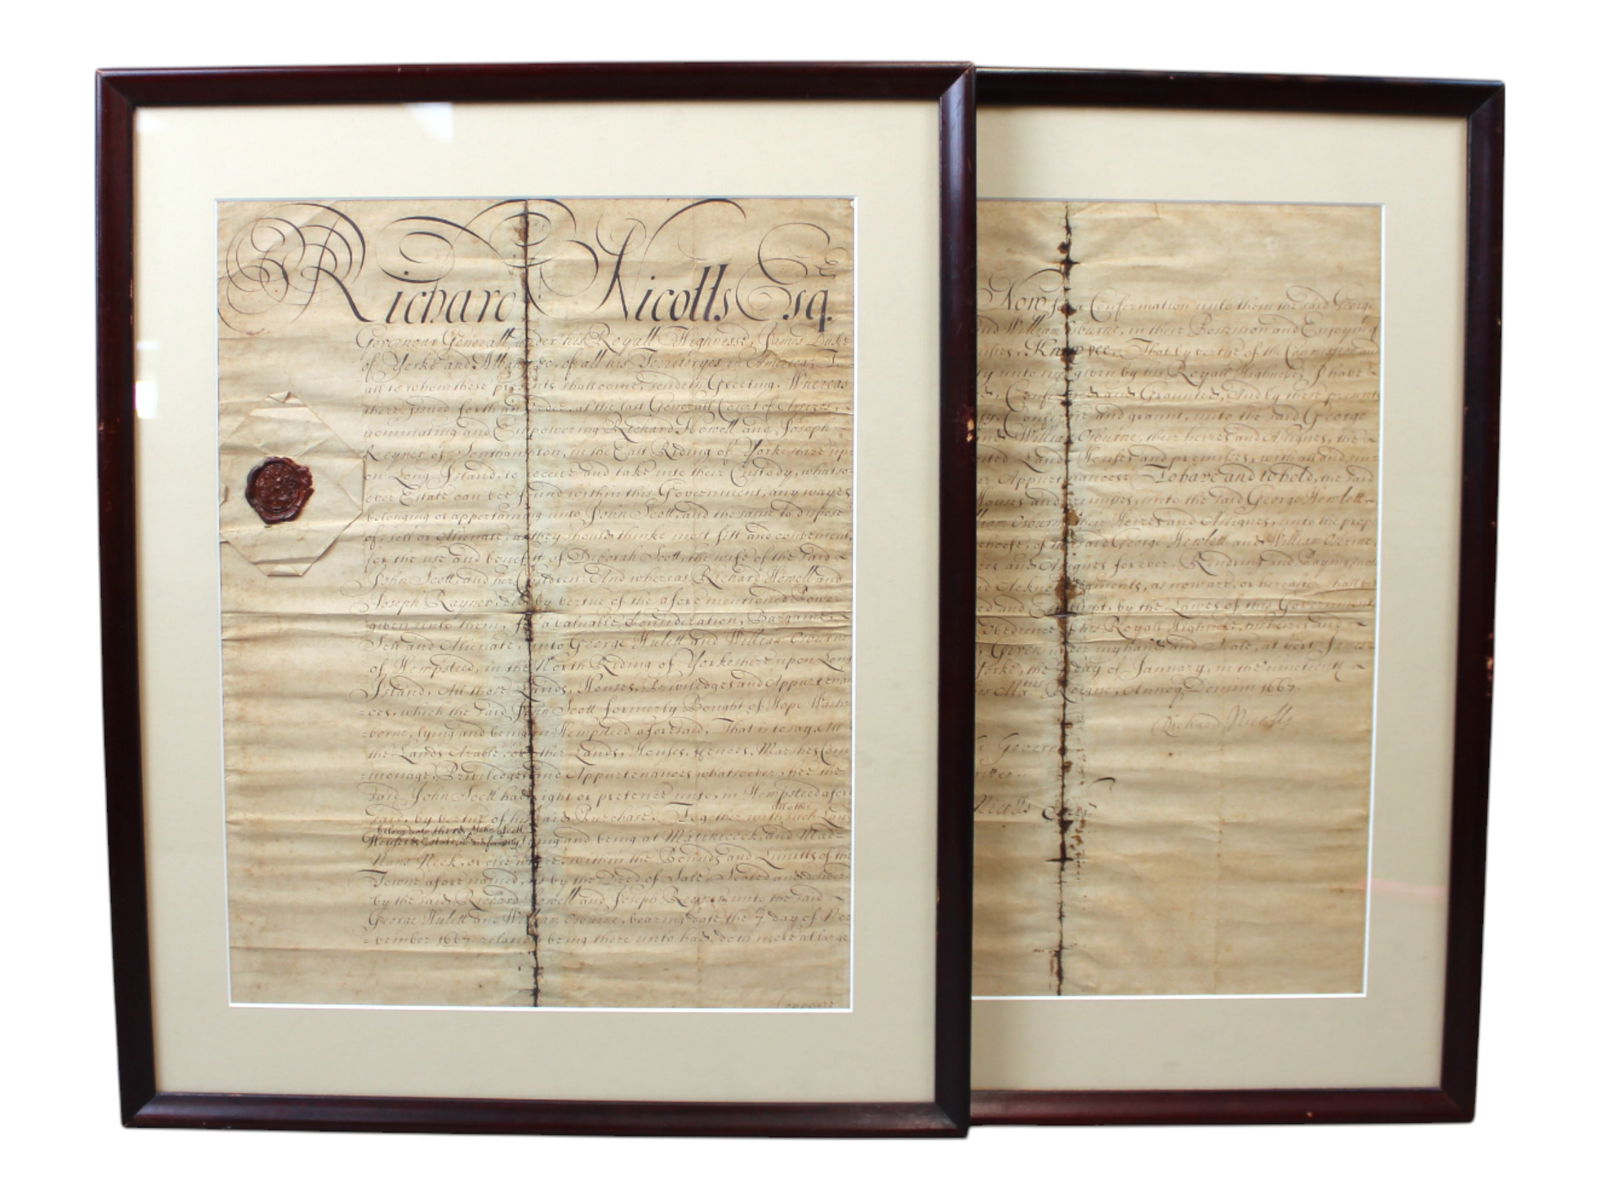 Richard Nicolls Esq.
Governour Generall under his Royall Highnesse, James Duke
of Yorke and Albany &c, of all his Territoryes in America; To
all to whom these presents shall come, sendeth Greeting. Whereas
there issued forth an order, at the last Generall Court of Assizes,
nominating and Empowering Richard Howell and Joseph
Reyner of Southampton, in the East Riding of Yorkeshire upon
on Long Island, to receive and take into their Custody, whatso-
ever Estate can bee found within this Government, any wayes
belonging or appertaining unto John Scott, and the same to dispose
of, sell or Alienate, as they should thinke most fitt and convenient,
for the use and benefitt of Deborah Scott, the wife of the said
John Scott and her Children: And whereas Richard Howell and
Joseph Rayner, did by vertue of the afore mentioned Power
given unto them, for a valuable Consideration, Bargaine
Sell and Alienate, unto George Hulett and William Osburne
of Hempsteed, in the North Riding of Yorkeshire upon Long
Island, All those Lands, Houses, Priviledges and Appurtenan
=ces, which the said John Scott formerly Bought of Hope Wash=
=borne, lying and being in Hempsteed aforesaid, That is to say, All
the Lands Arable, or other Lands, Houses, Fences, Marshes, Com
=monage, Priviledges and Appurtenances whatsoever, hee the
said John Scott had right or pretence unto, in Hempsteed afore
said, by vertue of his said Purchase. Together with such Land
all other
belong unto the said John Scott
Houses lying and being at Matinicock, and Mad=
=nans Neck, or elsewhere, within the Bounds and Limitts of the
Towne afore named, as by the Deed of Sale, Sealed and
by the said Richard Howell and Joseph Reyner unto the said
George Hulett and William Osburne, bearing date the 7 day of No=
=vember 1667 relation being there unto had, doth more at large
appeare
Now for a Confirmation unto them the said George
and William Osburne, in their Possession and Enjoying
Know yee, That by vertue of the Commission and
unto me given by his Royall Highness, I have
Confirmed and Graunted, And by these presents
Confirme and grant, unto the said George
William Osburne, their heires and Assignes, the
Lands Houses and premisses, with all and
Appurtenances To have and to hold, the said
Houses and premisses, unto the said George Hewlett
William Osburne their Heires and Assignes, unto the prop
of the said George Hewlett and William Osburne
and Assignes for ever. Rendring and Paying such
and Acknowledgments, as now are, or hereafter shall be
by the Lawes of this Government
of his Royall Highness,
Given under my hand and Seale, at Fort James
Yorke, the day of January, in the nineteenth
Reigne, Annoq Domini 1667.
Richard Nicolls